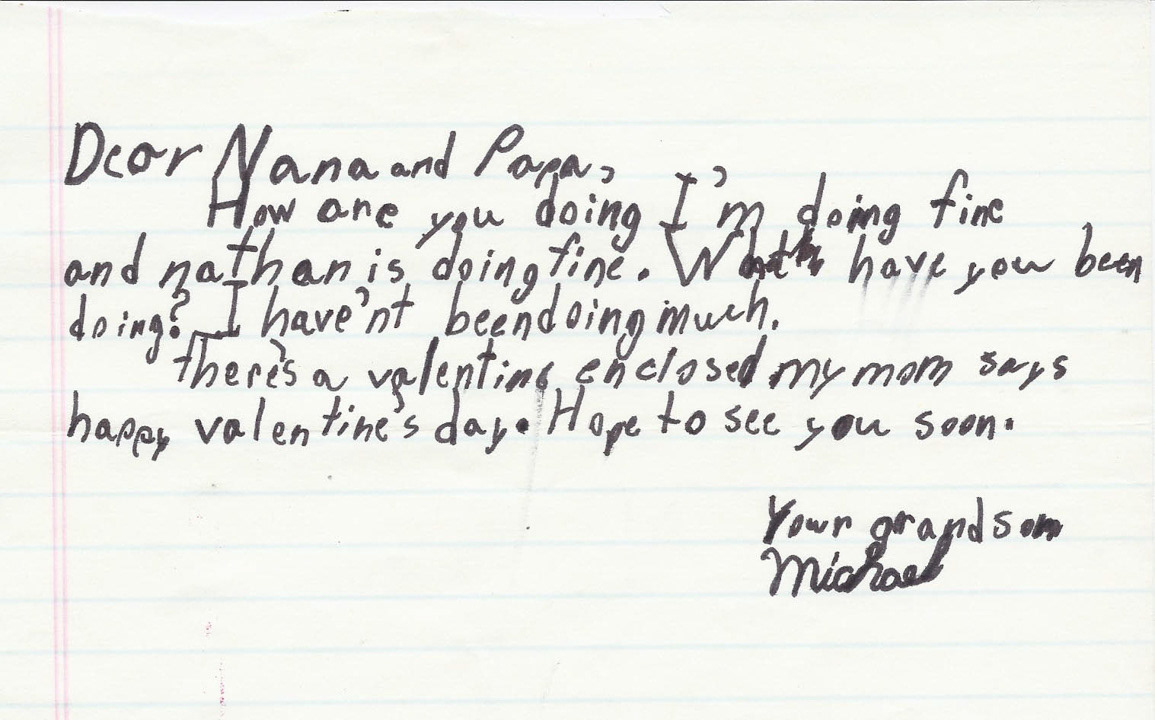 Dear Nana and Papa,
How are you doing I'm doing fine
and nathan is doing fine. What have you been
doing? I have'nt been doing much.
there's a valentine enclosed my mom says
happy valentine's day. Hope to see you soon.
Your grandson
Michael